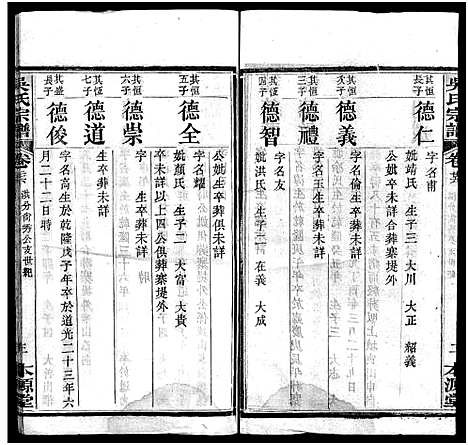 吳氏宗譜
卷
二
本源堂
長子
德仁
字名甫
妣靖氏 生子三 大川 大正 紹義
公妣生卒未詳合葬寨堤外
其恒次子
德義
字名倫生卒葬未詳
其恒三子
德禮
字名 生卒葬未詳
其恒四子
德智
字名友
妣洪氏 生子二 在義 大成
公妣生卒葬俱未詳
其恒五子
德全
字名耀
妣顏氏 生子二 大富 大貴
生卒未詳以上四公俱葬寨堤外
其恒六子
德崇
字 玉 生卒葬未詳
其恒七子
德道
生卒葬未詳
其盛長子
德俊
字名高生於乾隆戊子年卒於道光二十三年六
月二十二日時
吳氏宗譜
卷
洪分尚秀公支世紀
三
木源堂